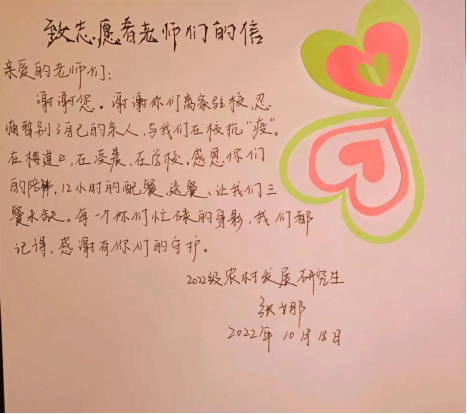 致志愿者老师们的信
亲爱的老师们:
谢谢您。谢谢你们离家驻校,忍
痛辞别了自己的亲人,与我们在校抗“疫”。
在楼道口,在凌晨,在学校,感恩你们
的陪伴,12小时的配餐、送餐、让我们三
餐未缺。每一个你们忙碌的身影,我们都
记得,感谢有你们的守护。
2022级农村发展研究生
张娜
2022年10月18日